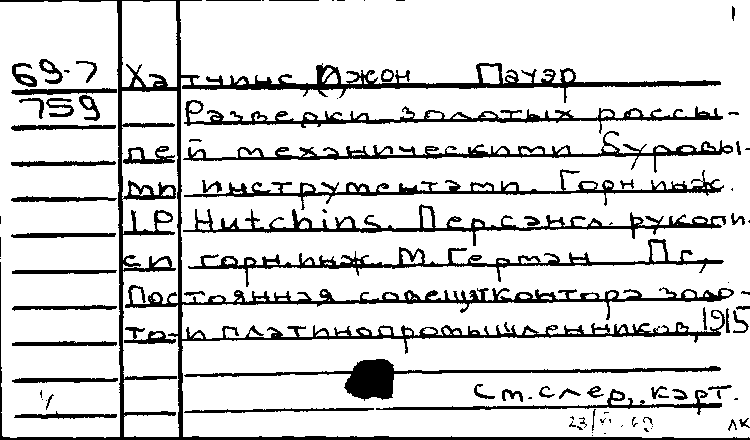 69-7 Хатчинс, Джон Пауэр
759 Разведки золотых россы-
пей механическими буровы-
ми инструментами. Горн.инж.
I.P. Hutchins. Пер.с англ. рукопи-
си горн.инж. М.Герман Пг,
Постоянная совещ.контора золо-
то- и платинопромышленников, 1915
См.след. карт.
23/VI-69 ЛК